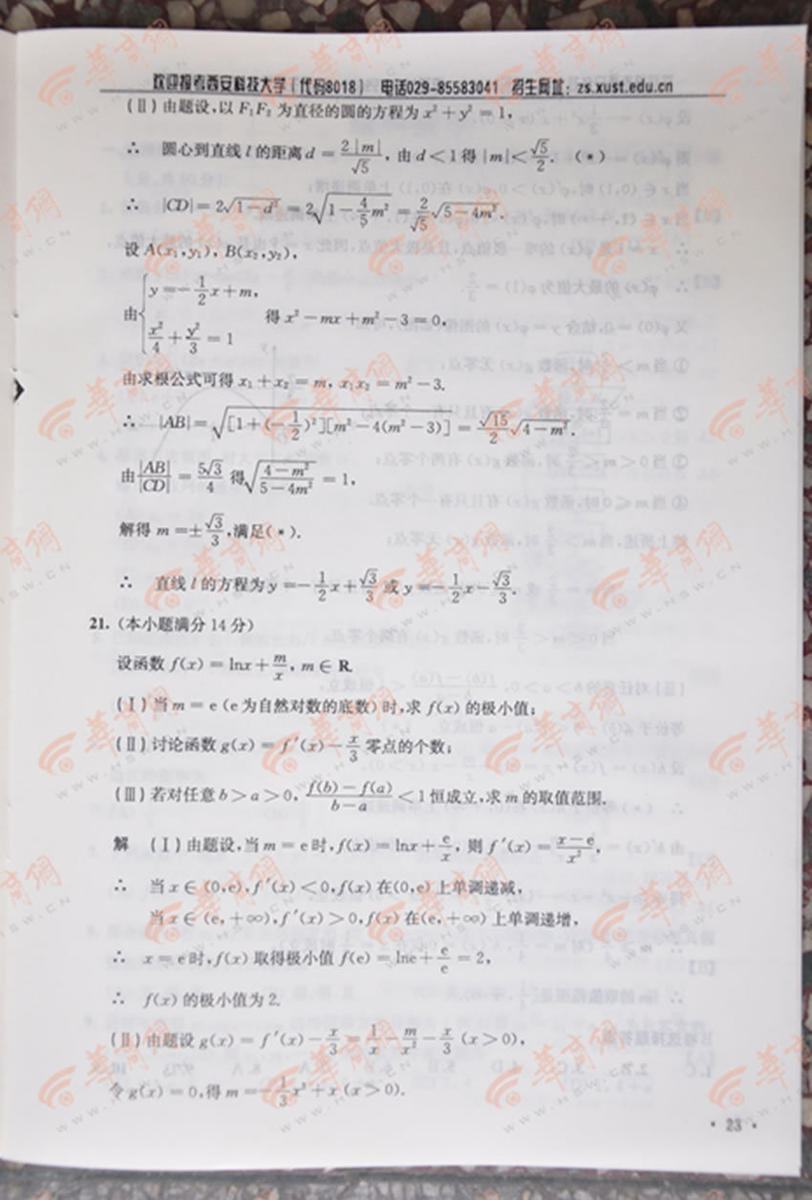 欢迎报考西安科技大学(代码8018) 电话029-85583041 招生网址:zs.xust.edu.cn
(Ⅱ)由题设,以F₁F₂为直径的圆的方程为x²+y²=1,
∴ 圆心到直线l的距离d=2|m|/√5,由d<1得|m|<√5/2. (*)
∴ |CD|=2√(1-d²)=2√(1-4/5m²)=2/√5√(5-4m²).
设A(x₁,y₁),B(x₂,y₂),
由{y=-1/2x+m, x²/4+y²/3=1 得x²-mx+m²-3=0,
由求根公式可得x₁+x₂=m,x₁x₂=m²-3.
∴ |AB|=√([1+(-1/2)²][m²-4(m²-3)])=√15/2√(4-m²).
由|AB|/|CD|=5√3/4得√((4-m²)/(5-4m²))=1,
解得m=±√3/3,满足(*).
∴ 直线l的方程为y=-1/2x+√3/3或y=-1/2x-√3/3.
21.(本小题满分14分)
设函数f(x)=lnx+m/x,m∈R.
(Ⅰ)当m=e(e为自然对数的底数)时,求f(x)的极小值;
(Ⅱ)讨论函数g(x)=f′(x)-x/3零点的个数;
(Ⅲ)若对任意b>a>0,(f(b)-f(a))/(b-a)<1恒成立,求m的取值范围.
解 (Ⅰ)由题设,当m=e时,f(x)=lnx+e/x,则f′(x)=(x-e)/x²,
∴ 当x∈(0,e),f′(x)<0,f(x)在(0,e)上单调递减,
当x∈(e,+∞),f′(x)>0,f(x)在(e,+∞)上单调递增,
∴ x=e时,f(x)取得极小值f(e)=lne+e/e=2,
∴ f(x)的极小值为2.
(Ⅱ)由题设g(x)=f′(x)-x/3=1/x-m/x²-x/3(x>0),
令g(x)=0,得m=-1/3x³+x(x>0).
·23·